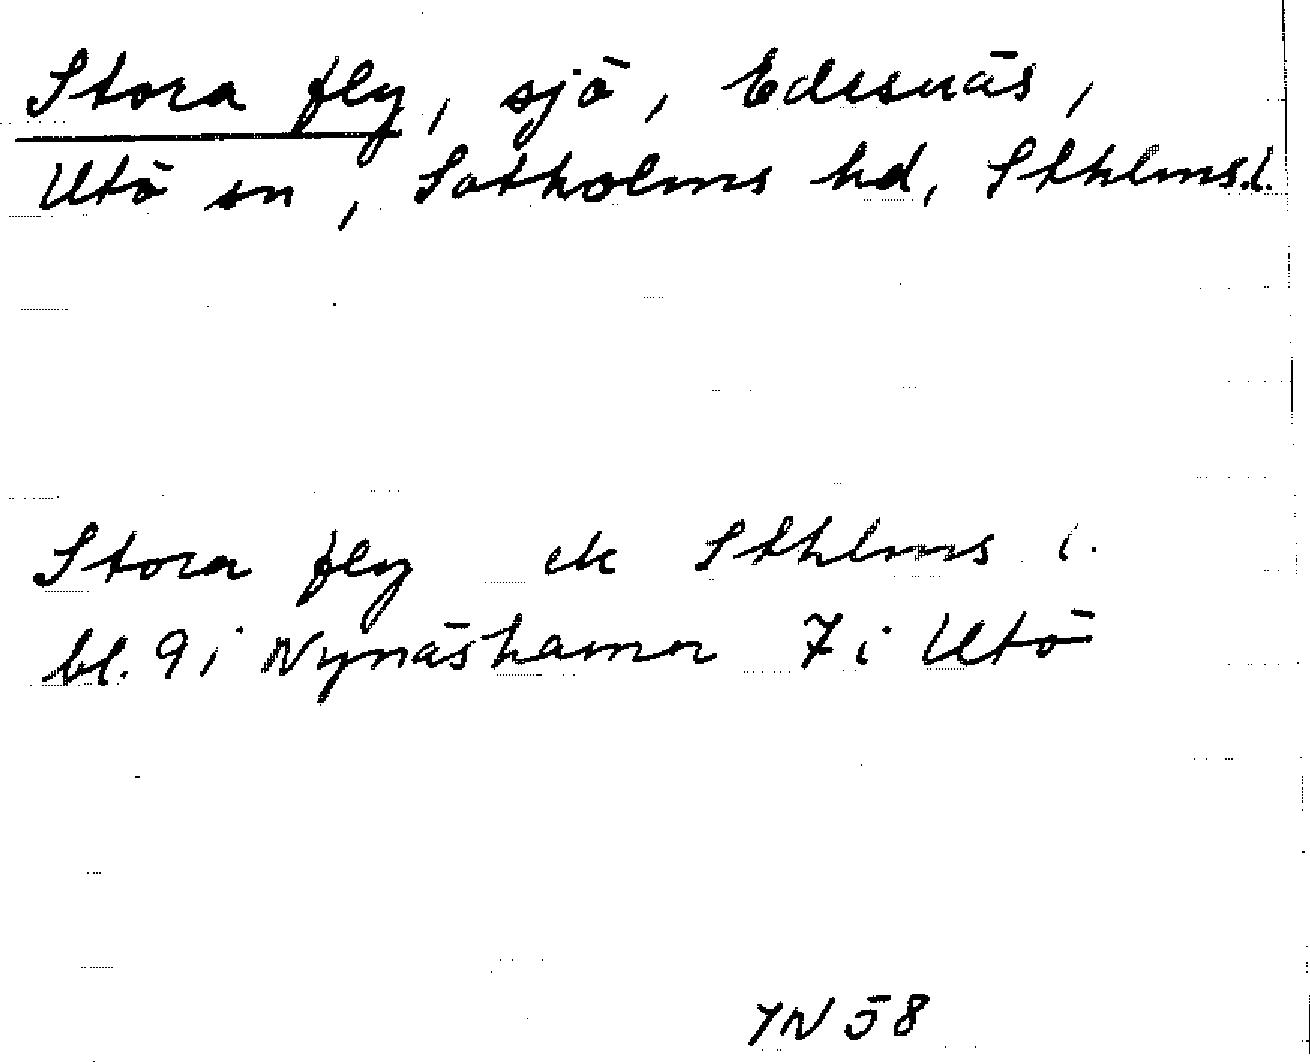 Stora fly, sjö, Edesnäs,
Utö sn, Sotholms hd, Sthlms l.
Stora fly ek Sthlms l.
bl. 9 i Nynäshamn 7 i Utö
YN 58